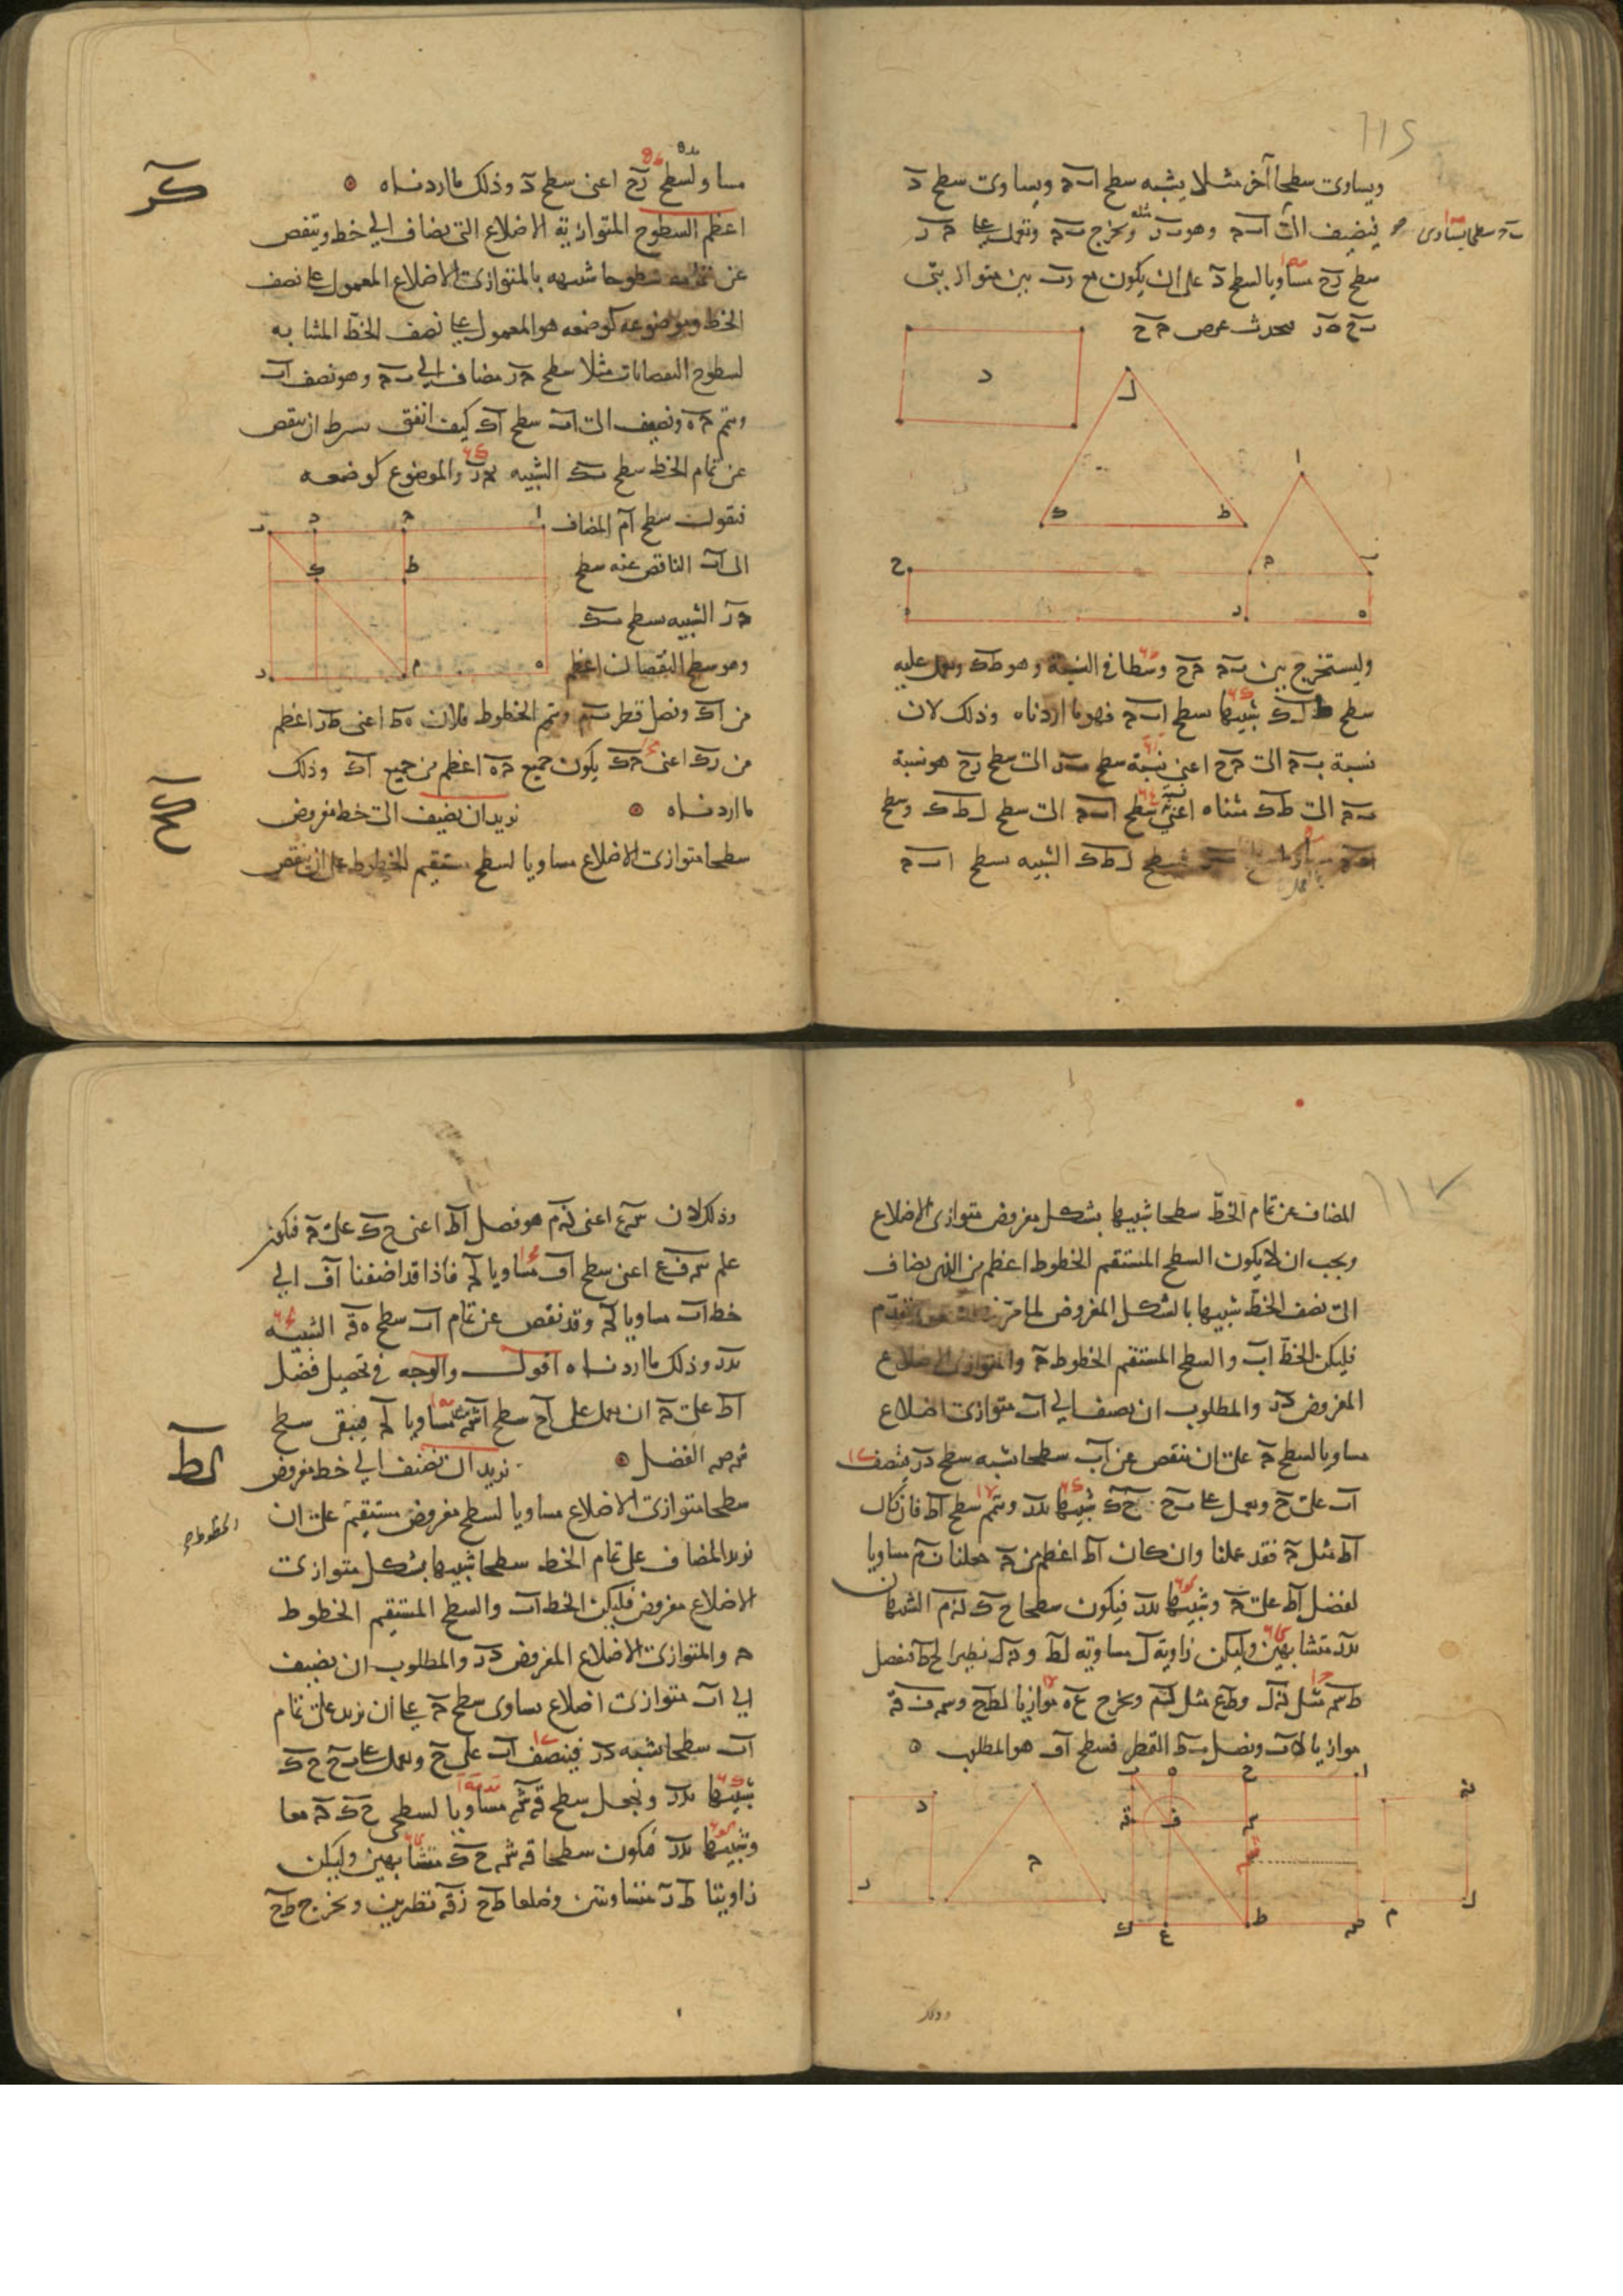 ويساوى سطحا آخر مثلا يشبه سطح ا ب ح ويساوى سطح د
فيضيف الى ا ب ح وهو ب ر ونخرج ب ح ونعمل على ح ر
سطح ر ح مساويا لسطح د على ان يكون مع ر ب بين متوازيتى
ب ح ه ر فيحدث عرض ح ح
وليستخرج بين ب ح ح ح وسطا فى النسبة وهو ط ك ونعمل عليه
سطح ط ل ك شبيها بسطح ا ب ح فهو ما اردناه وذلك لان
نسبة ب ح الى ح ح اعنى نسبة سطح ب ر الى سطح ر ح هو نسبة
ب ح الى ط ك مثناه اعنى نسبة سطح ا ب ح الى سطح ل ط ك وسطح
فسطح ل ط ك الشبيه بسطح ا ب ح
مساو لسطح ر ح اعنى سطح د وذلك ما اردناه
كز
اعظم السطوح المتوازية الاضلاع التى يضاف الى خط وينقص
عن تمامه سطوحا شبيهه بالمتوازى الاضلاع المعمول على نصف
الخط وموضوعه كوضعه هو المعمول على نصف الخط المشابه
لسطوح النقصانات مثلا سطح ح ر مضاف الى ب ح وهو نصف ا ب
ونتم ح ه ونضيف الى ا ب سطح ا ك كيف اتفق بشرط ان ينقص
عن تمام الخط سطح ب ك الشبيه بح ر والموضوع كوضعه
فنقول سطح ا م المضاف
الى ا ب الناقص عنه سطح
ح ر الشبيه بسطح ب ك
وهو سطح النقصان اعظم
من ا ك ونصل قطر ب م ونتم الخطوط فلان ه ط اعنى ط ر اعظم
من ر ك اعنى ح ك يكون جميع ح ه اعظم من جميع ا ك وذلك
ما اردناه نريد ان نضيف الى خط مفروض
كح
سطحا متوازى الاضلاع مساويا لسطح مستقيم الخطوط على ان ينقص
المضاف عن تمام الخط سطحا شبيها بشكل مفروض متوازى الاضلاع
ويجب ان لا يكون السطح المستقيم الخطوط اعظم من الذى يضاف
الى نصف الخط شبيها بالشكل المفروض لما مر
فليكن الخط ا ب والسطح المستقيم الخطوط ح والمتوازى الاضلاع
المفروض د ر والمطلوب ان نضيف الى ا ب متوازى اضلاع
مساويا لسطح ح على ان ننقص عن ا ب سطحا يشبه سطح د ر فننصف
ا ب على ح ونعمل على ب ح ح ك شبيها بد ر ونتم سطح ا ط فان كان
ا ط مثل ح فقد عملنا وان كان ا ط اعظم من ح عملنا ن م مساويا
لفضل ا ط على ح وشبيها بد ر فيكون سطحا ح ك ن م الشبيهان
بد ر متشابهين وليكن زاوية ل مساوية لط ون ل نظيرا لح ط فنفصل
ط س مثل ن ل وط ع مثل ل م ونخرج ع ه موازيا لط ح وس ف ق
موازيا لا ب ونصل ب ط القطر فسطح ا ف هو المطلوب
وذلك لان س ع اعنى ن م هو فضل ا ط اعنى ح ك على ح فيكون
علم س ف ع اعنى سطح ا ف مساويا لح فاذا قد اضفنا ا ف الى
خط ا ب مساويا لح وقد نقص عن تمام ا ب سطح ه ق الشبيه
بد ر وذلك ما اردناه اقول والوجه فى تحصيل فضل
ا ط على ح ان يعمل على ا ح سطح مساويا لح فيبقى سطح
الفضل نريد ان نضيف الى خط مفروض
كط
سطحا متوازى الاضلاع مساويا لسطح مفروض مستقيم على ان
الخطوط
نريد المضاف على تمام الخط سطحا شبيها بشكل متوازى
الاضلاع مفروض فليكن الخط ا ب والسطح المستقيم الخطوط
ح والمتوازى الاضلاع المفروض د ر والمطلوب ان نضيف
الى ا ب متوازى اضلاع يساوى سطح ح على ان نزيد على تمام
ا ب سطحا يشبه د ر فننصف ا ب على ح ونعمل على ب ح ح ك
شبيها بد ر ونجعل سطح ق ش مساويا لسطحى ح ك ح معا
وشبيها بد ر فيكون سطحا ق ش ح ك متشابهين وليكن
زاويتا ط ر متساويتين وضلعا ط ح ر ق نظيرين ونخرج ط ح